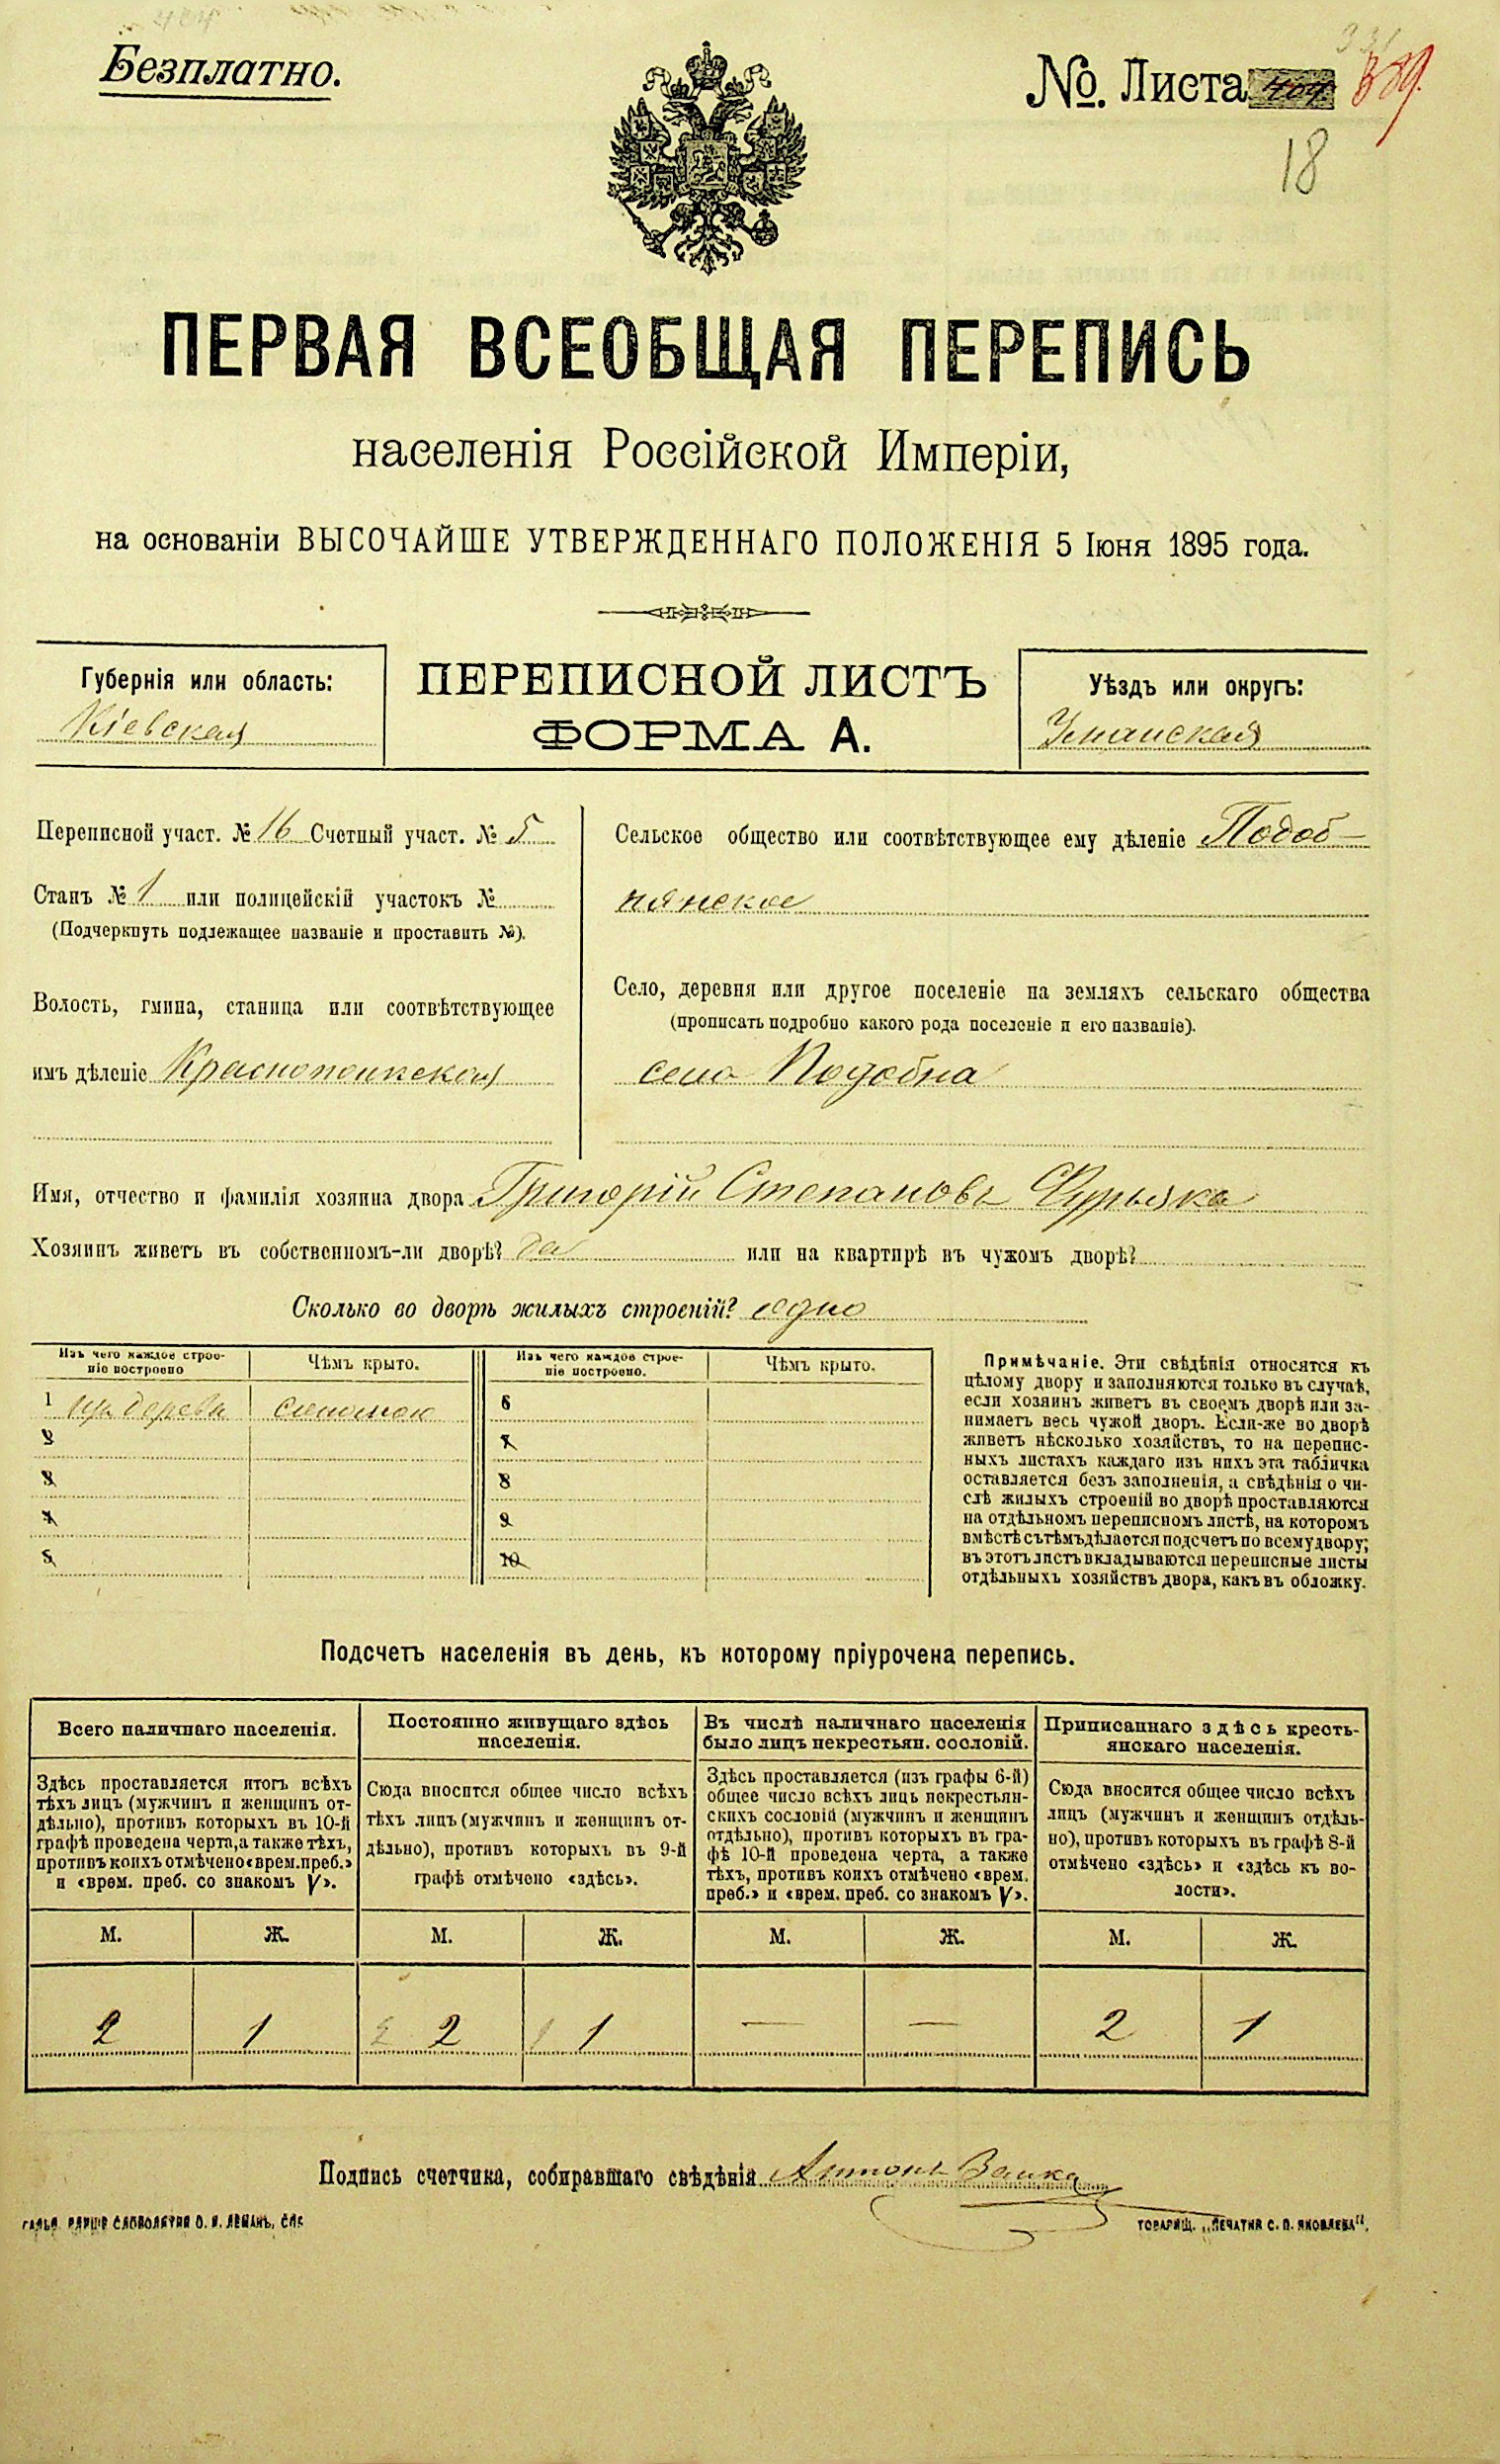 Безплатно.
№. Листа 404 339.
18
ПЕРВАЯ ВСЕОБЩАЯ ПЕРЕПИСЬ
населенія Россійской Имперіи,
на основаніи ВЫСОЧАЙШЕ УТВЕРЖДЕННАГО ПОЛОЖЕНІЯ 5 Іюня 1895 года.
Губернія или область:
Кіевская
ПЕРЕПИСНОЙ ЛИСТЪ
ФОРМА А.
Уѣздъ или округъ:
Уманская
Переписной участ. № 16 Счетный участ. № 5
Станъ № 1 или полицейскій участокъ №
(Подчеркнуть подлежащее названіе и проставить №).
Волость, гмина, станица или соотвѣтствующее
имъ дѣленіе Краснополкская
Сельское общество или соотвѣтствующее ему дѣленіе Подоб-
нянское
Село, деревня или другое поселеніе на земляхъ сельскаго общества
(прописать подробно какого рода поселеніе и его названіе).
село Подобна
Имя, отчество и фамилія хозяина двора Григорій Степановъ Фурыяка
Хозяинъ живетъ въ собственномъ-ли дворѣ? да или на квартирѣ въ чужомъ дворѣ?
Сколько во дворѣ жилыхъ строеній? одно
Изъ чего каждое строе-
ніе построено
Чѣмъ крыто.
Изъ чего каждое строе-
ніе построено.
Чѣмъ крыто.
1 изъ дерева соломою
2
3
4
5
6
7
8
9
10
Примѣчаніе. Эти свѣдѣнія относятся къ
цѣлому двору и заполняются только въ случаѣ,
если хозяинъ живетъ въ своемъ дворѣ или за-
нимаетъ весь чужой дворъ. Если-же во дворѣ
живетъ нѣсколько хозяйствъ, то на перепис-
ныхъ листахъ каждаго изъ нихъ эта табличка
оставляется безъ заполненія, а свѣдѣнія о чи-
слѣ жилыхъ строеній во дворѣ проставляются
на отдѣльномъ переписномъ листѣ, на которомъ
вмѣстѣ съ тѣмъ дѣлается подсчетъ по всему двору;
въ этотъ листъ вкладываются переписные листы
отдѣльныхъ хозяйствъ двора, какъ въ обложку.
Подсчетъ населенія въ день, къ которому пріурочена перепись.
Всего наличнаго населенія.
Здѣсь проставляется итогъ всѣхъ
тѣхъ лицъ (мужчинъ и женщинъ от-
дѣльно), противъ которыхъ въ 10-й
графѣ проведена черта, а также тѣхъ,
противъ коихъ отмѣчено «врем. преб.»
и «врем. преб. со знакомъ V».
Постоянно живущаго здѣсь
населенія.
Сюда вносится общее число всѣхъ
тѣхъ лицъ (мужчинъ и женщинъ от-
дѣльно), противъ которыхъ въ 9-й
графѣ отмѣчено «здѣсь».
Въ числѣ наличнаго населенія
было лицъ некрестьян. сословій.
Здѣсь проставляется (изъ графы 6-й)
общее число всѣхъ лицъ некрестьян-
скихъ сословій (мужчинъ и женщинъ
отдѣльно), противъ которыхъ въ гра-
фѣ 10-й проведена черта, а также
тѣхъ, противъ коихъ отмѣчено «врем.
преб.» и «врем. преб. со знакомъ V».
Приписаннаго здѣсь кресть-
янскаго населенія.
Сюда вносится общее число всѣхъ
лицъ (мужчинъ и женщинъ отдѣль-
но), противъ которыхъ въ графѣ 8-й
отмѣчено «здѣсь» и «здѣсь къ во-
лости».
М. Ж. М. Ж. М. Ж. М. Ж.
2 1 2 2 1 1 — — 2 1
Подпись счетчика, собиравшаго свѣдѣнія Антонъ Заика
ТОВАРИЩ. „ПЕЧАТНЯ С. П. ЯКОВЛЕВА".